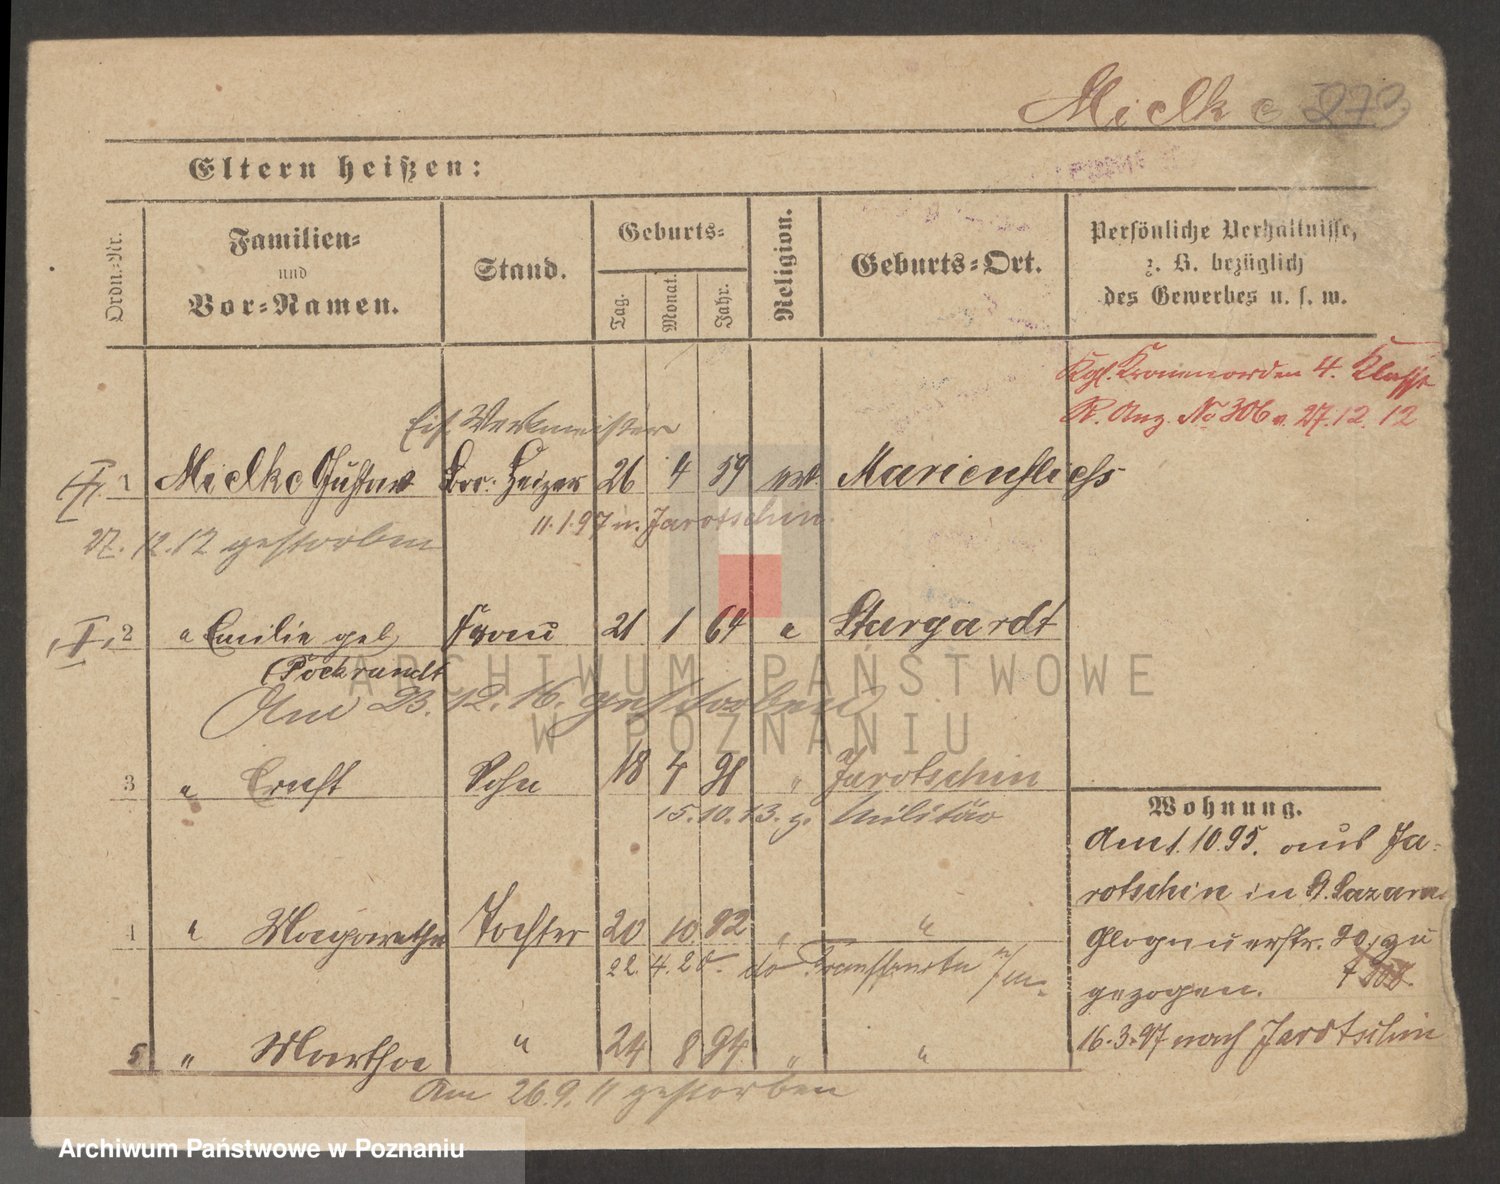 Mielke 273
Eltern heißen:
Ordn.-Nr.
Familien-
und
Vor-Namen.
Stand.
Geburts-
Tag.
Monat.
Jahr.
Religion.
Geburts-Ort.
Persönliche Verhältnisse,
z. B. bezüglich
des Gewerbes u. s. w.
Kgl. Kronenorden 4. Klasse
R. Anz. No 306 v. 27.12.12
Eis. Werkmeister
1 Mielke Gustav Loc. Heizer 26 4 59 ev. Marienfliess
11.1.97 n. Jarotschin
27.12.12 gestorben
2 " Emilie geb. Frau 21 1 64 " Stargardt
Pockrandt
Am 23.12.16. gestorben
3 " Ernst Sohn 18 4 91 " Jarotschin
15.10.13. z. Militär
4 " Margarethe Tochter 20 10 92 " "
22.4.20.
5 " Martha " 24 8 94 " "
Am 26.9.11 gestorben
Wohnung.
Am 1.10.95. aus Ja-
rotschin in St. Lazarus
Glogauerstr. 20, zu
gezogen.
16.3.97 nach Jarotschin
ARCHIWUM PAŃSTWOWE
W POZNANIU
Archiwum Państwowe w Poznaniu